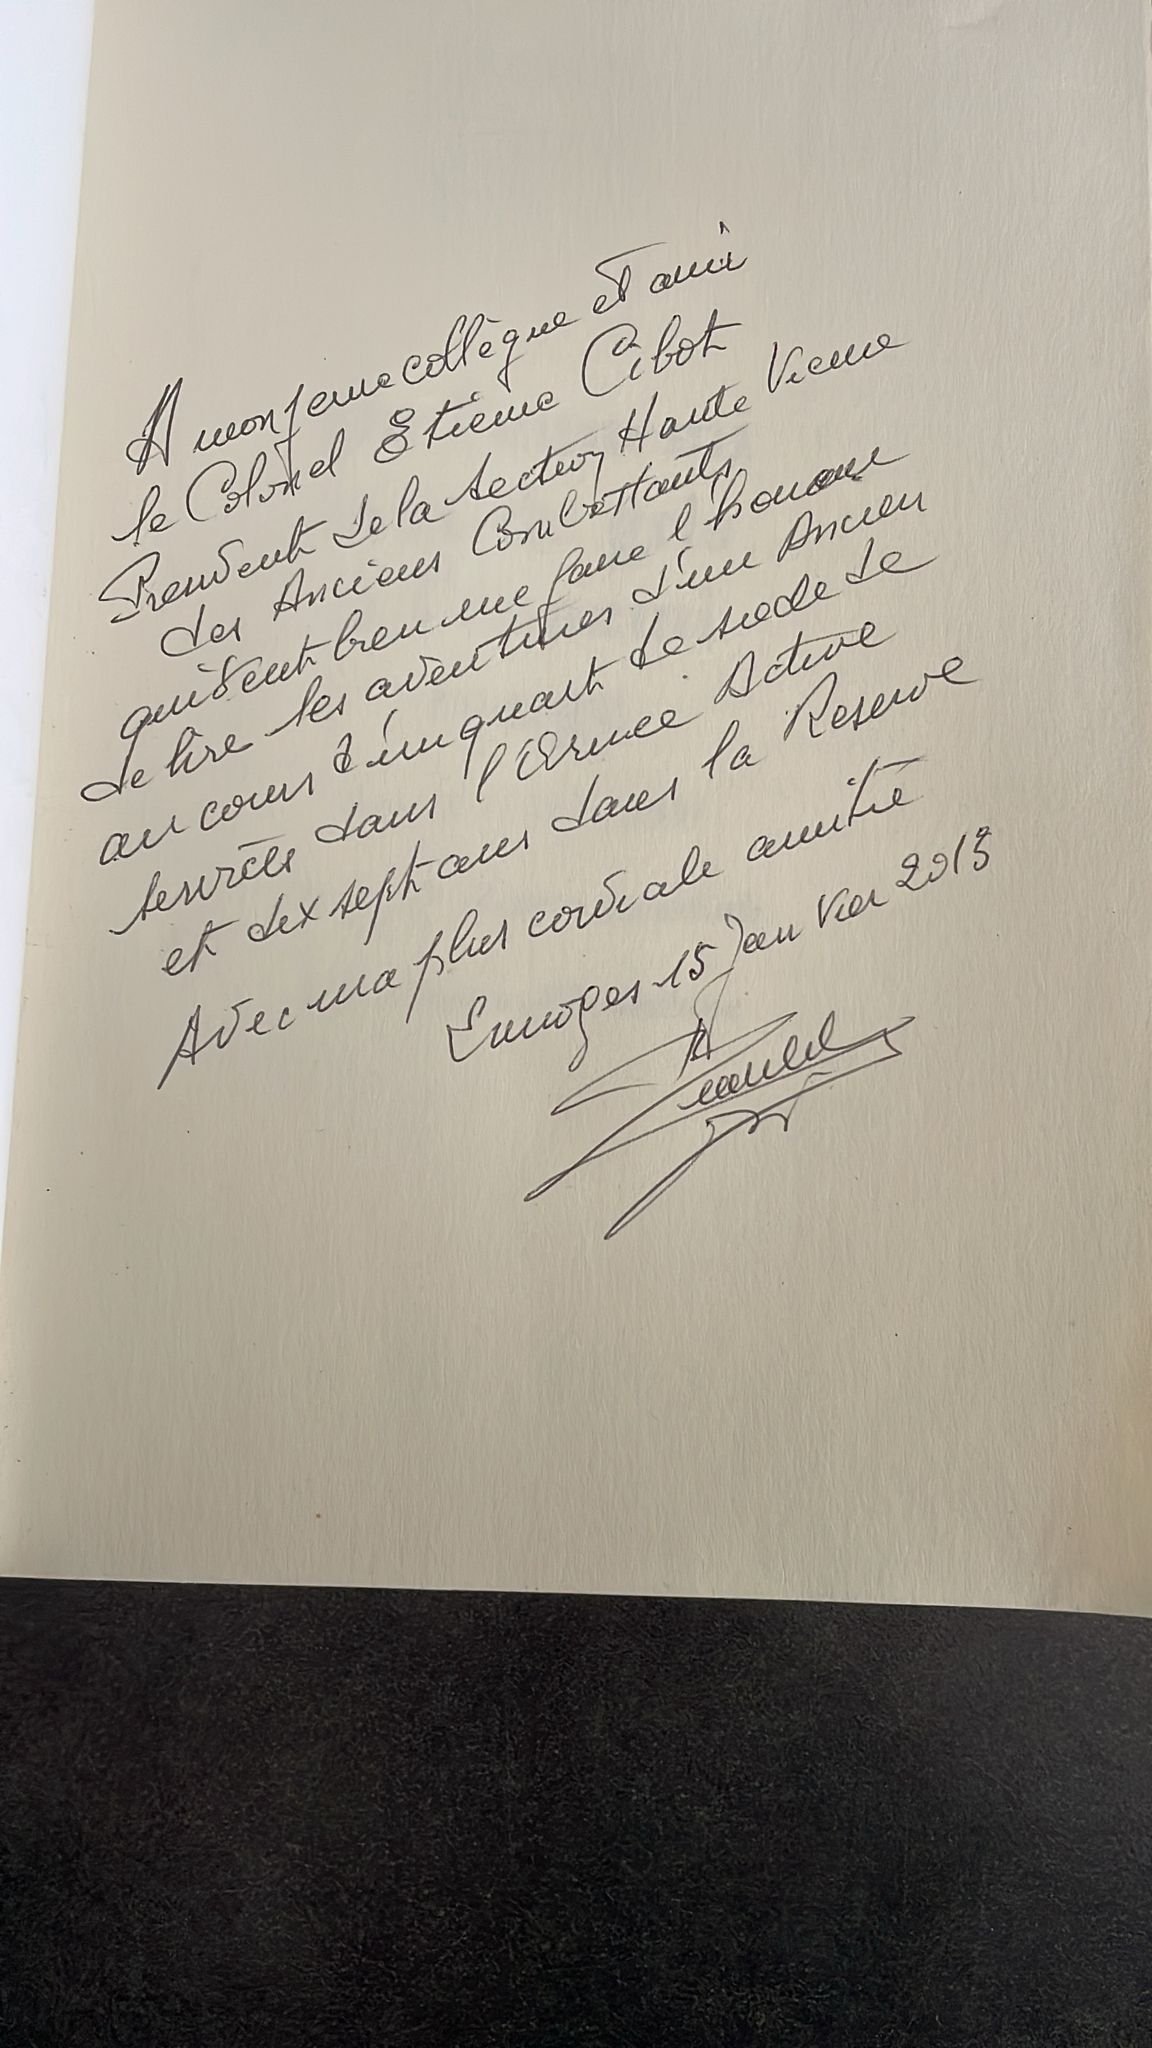 A mon jeune collègue et ami
le Colonel Etienne Cibot
President de la section Haute Vienne
des Anciens Combattants
qui veut bien me faire l'honneur
de lire les aventures d'un Ancien
au cours d'un quart de siecle de
services dans l'Armée Active
et dix sept ans dans la Reserve
Avec ma plus cordiale amitié
Limoges 15 Janvier 2013